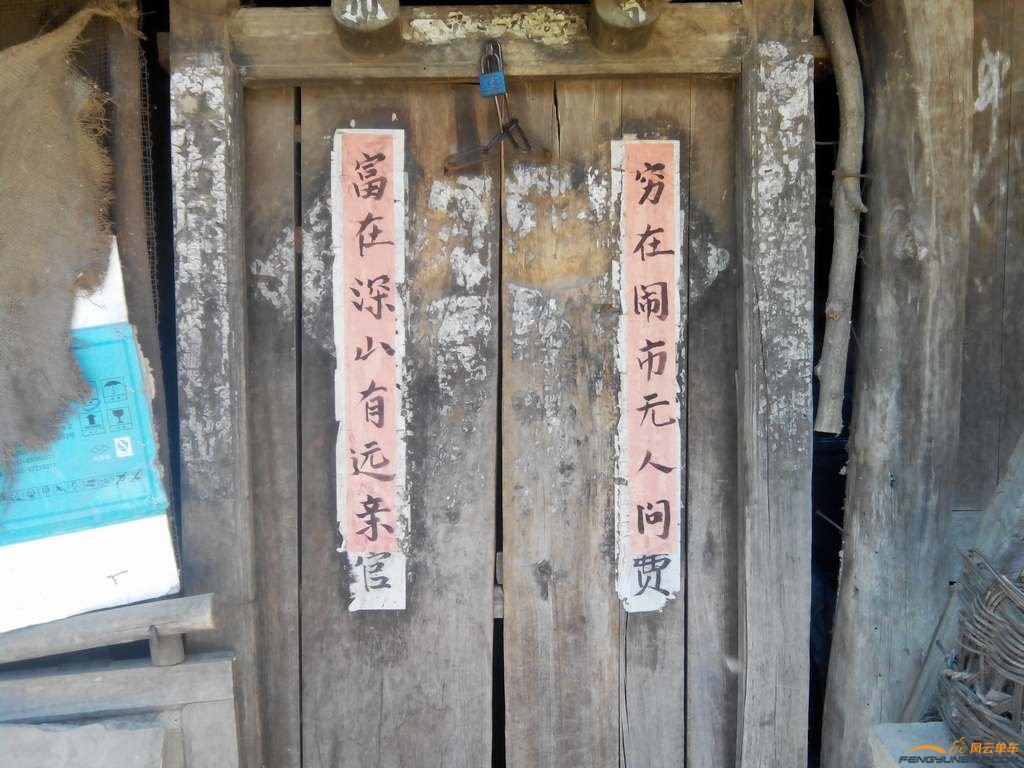 穷在闹市无人问
贾
富在深山有远亲
官
风云单车
FENGYUNBIKE.COM